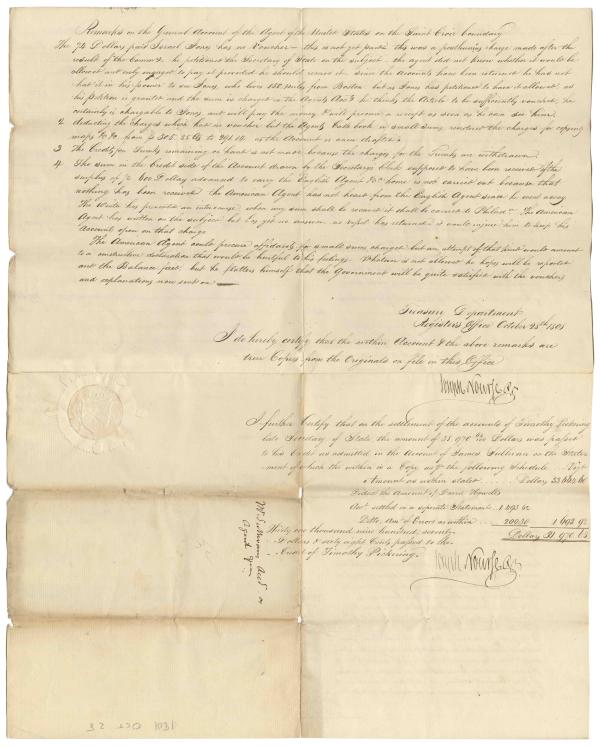 Remarks on the General Account of the Agent of the United States on the Saint Croix Boundary
The 74 Dollars paid Israel Jones has no Voucher – this is not yet paid. this was a posthumous charge made after the
result of the Commrs. he petitioned the Secretary of State on the subject. the agent did not know whether it would be
allowed and only engaged to pay it provided he should receive it. since the Accounts have been returned he has not
had it in his power to see Jones, who lives 150 miles from Boston. but as Jones has petitioned to have it allowed as
his Petition is granted and the sum is charged in the Agents Acct he thinks the Article to be sufficiently vouched, he
certainly is chargeable to Jones, and will pay the money & will procure a receipt as soon as he can see him.
2 deducting the Charges which had no voucher but the Agents Cash book in small sums, renders the charges for copying
maps &c
3 The Credit for Trunks remaining on hand is not made because the charges for the Trunks are withdrawn.
4 The sum in the Credit side of the Account drawn by the Secretarys Clerk supposed to have been received of the
surplus of ye 600 Dollars advanced to carry the English Agent &c. home is not carried out because that
nothing has been received the American Agent has not heard from the English Agent since he went away
The White has prevented an intercourse when any sum shall be received it shall be carried to Philaa. The American
Agent has written on the subject but has got no answer as vessel has returned it would injure him to keep his
Account open on that charge
The American Agent could procure affidavits for small sums charged but an attempt of that kind would amount
to a constructive declaration that would be hurtful to his feelings. Whatever is not allowed he hopes will be reported
and the Balance fact, but he flatters himself that the Government will be quite satisfied with the vouchers
and explanations now sent on
Treasury Department
Registers Office October 23rd 1801
I do hereby certify that the within Account & the above remarks are
true Copies from the Originals on file in this Office
Joseph Nourse
I further Certify that on the settlement of the accounts of Timothy Pickering
late Secretary of State the amount of 31.970 Dollars was passed
to his Credit as admitted in the Account of James Sullivan on the Settle-
ment of which the within is a Copy as pr the following Schedule Viz
Amount as within stated Dollars 33.664.60
Deduct the Amount of David Howells
Acct. settled in a seperate Statement 1.493 62
Ditto, Amt of Errors as within 200.30 1 693 92
Thirty one thousand nine hundred seventy
Dollars & sixty eight Cents passed to the
Credit of Timothy Pickering
Dollars 31.970.68
Joseph Nourse
Mr. Sullivans Acct as
Agent
1801 Oct 23